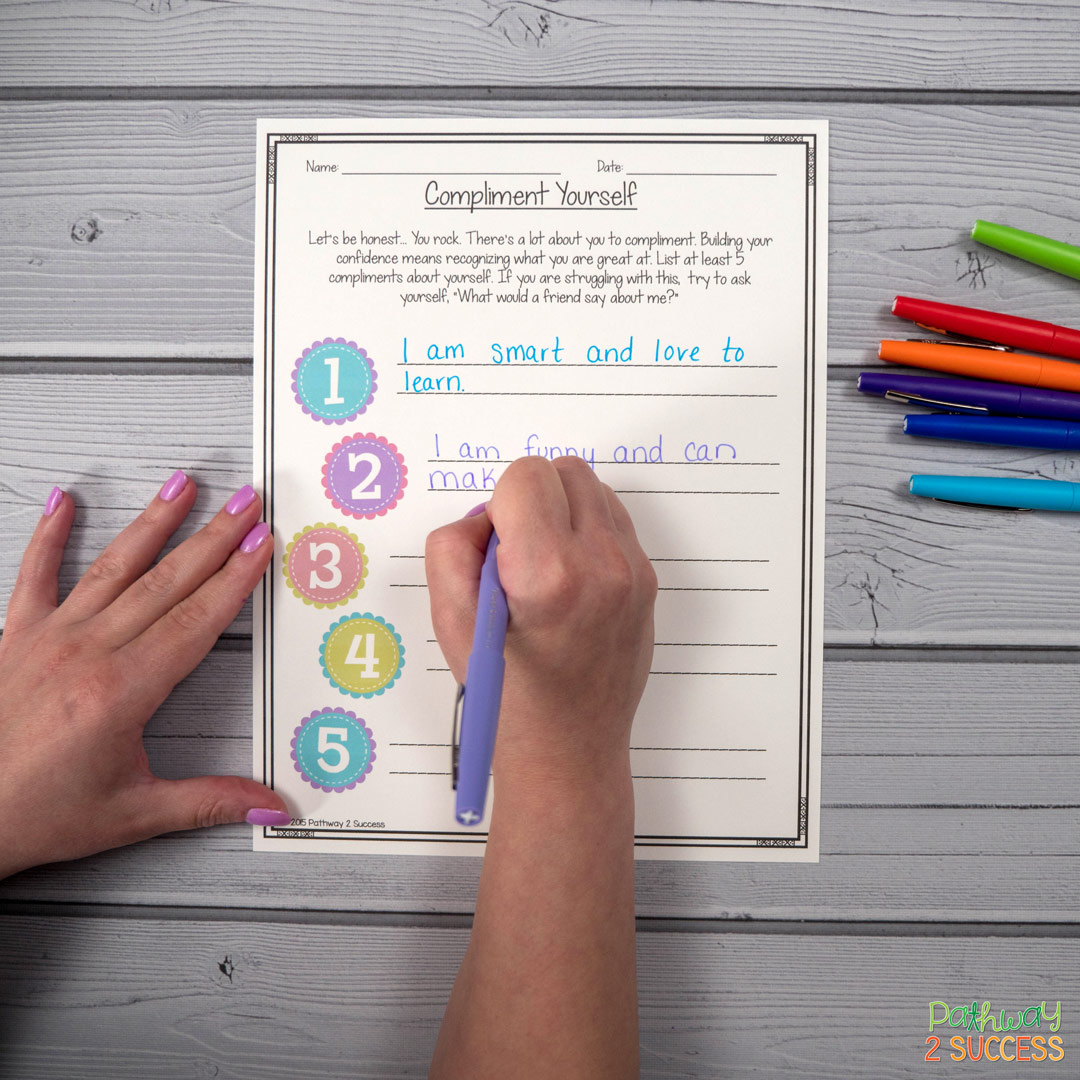 Name: Date:
Compliment Yourself
Let's be honest... You rock. There's a lot about you to compliment. Building your
confidence means recognizing what you are great at. List at least 5
compliments about yourself. If you are struggling with this, try to ask
yourself, "What would a friend say about me?"
1 I am smart and love to
learn.
2 I am funny and can
mak
3
4
5
2015 Pathway 2 Success
Pathway
2 SUCCESS